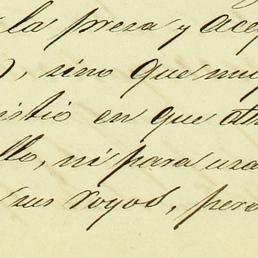 la presa y acep
, sino que muy
istió en que atr
llo, ni para usa
sus voyos, pero